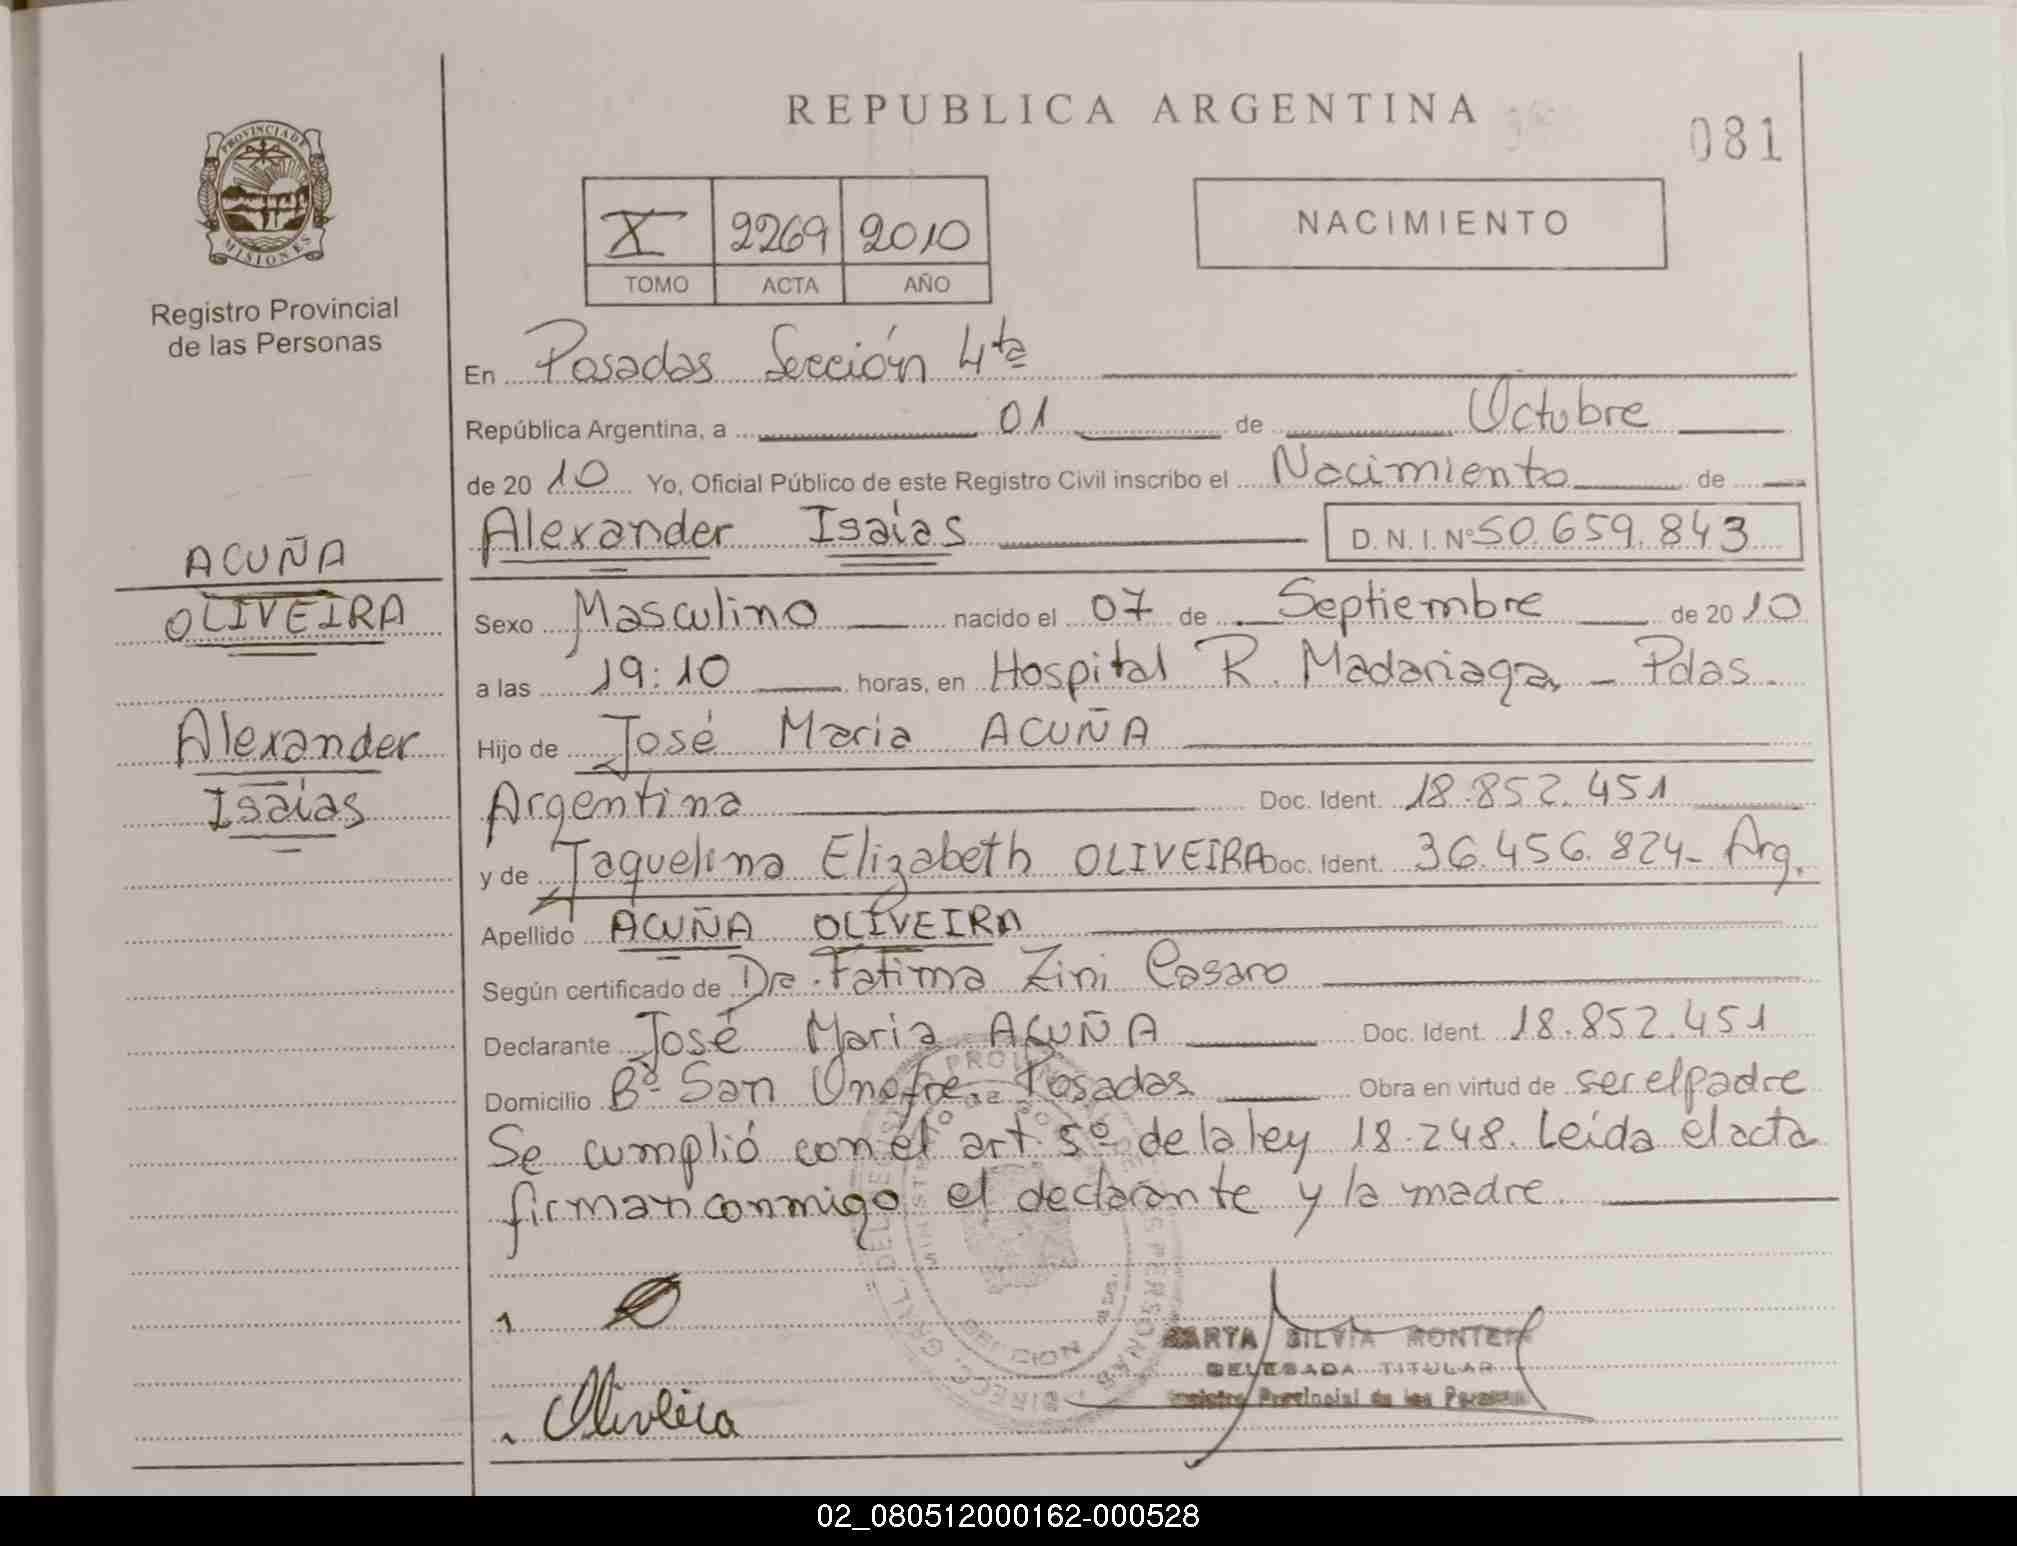 REPUBLICA ARGENTINA
081
PROVINCIA DE MISIONES
Registro Provincial
de las Personas
X 2269 2010
TOMO ACTA AÑO
NACIMIENTO
En Posadas Sección 4ta
República Argentina, a 01 de Octubre
de 2010 Yo, Oficial Público de este Registro Civil inscribo el Nacimiento de
Alexander Isaías D.N.I.Nº 50.659.843
ACUÑA
OLIVEIRA
Alexander
Isaías
Sexo Masculino nacido el 07 de Septiembre de 2010
a las 19:10 horas, en Hospital R. Madariaga - Pdas.
Hijo de José Maria ACUÑA
Argentina Doc. Ident. 18.852.451
y de Jaquelina Elizabeth OLIVEIRA Doc. Ident. 36.456.824- Arg.
Apellido ACUÑA OLIVEIRA
Según certificado de Dra. Fatima Zini Casaro
Declarante José Maria ACUÑA Doc. Ident. 18.852.451
Domicilio Bº San Onofre. Posadas Obra en virtud de ser el padre
Se cumplió con el art. 5º de la ley 18.248. Leída el acta
firman conmigo el declarante y la madre
Oliveira
MARTA SILVIA
DELEGADA TITULAR
Registro Provincial de las Personas
02_080512000162-000528